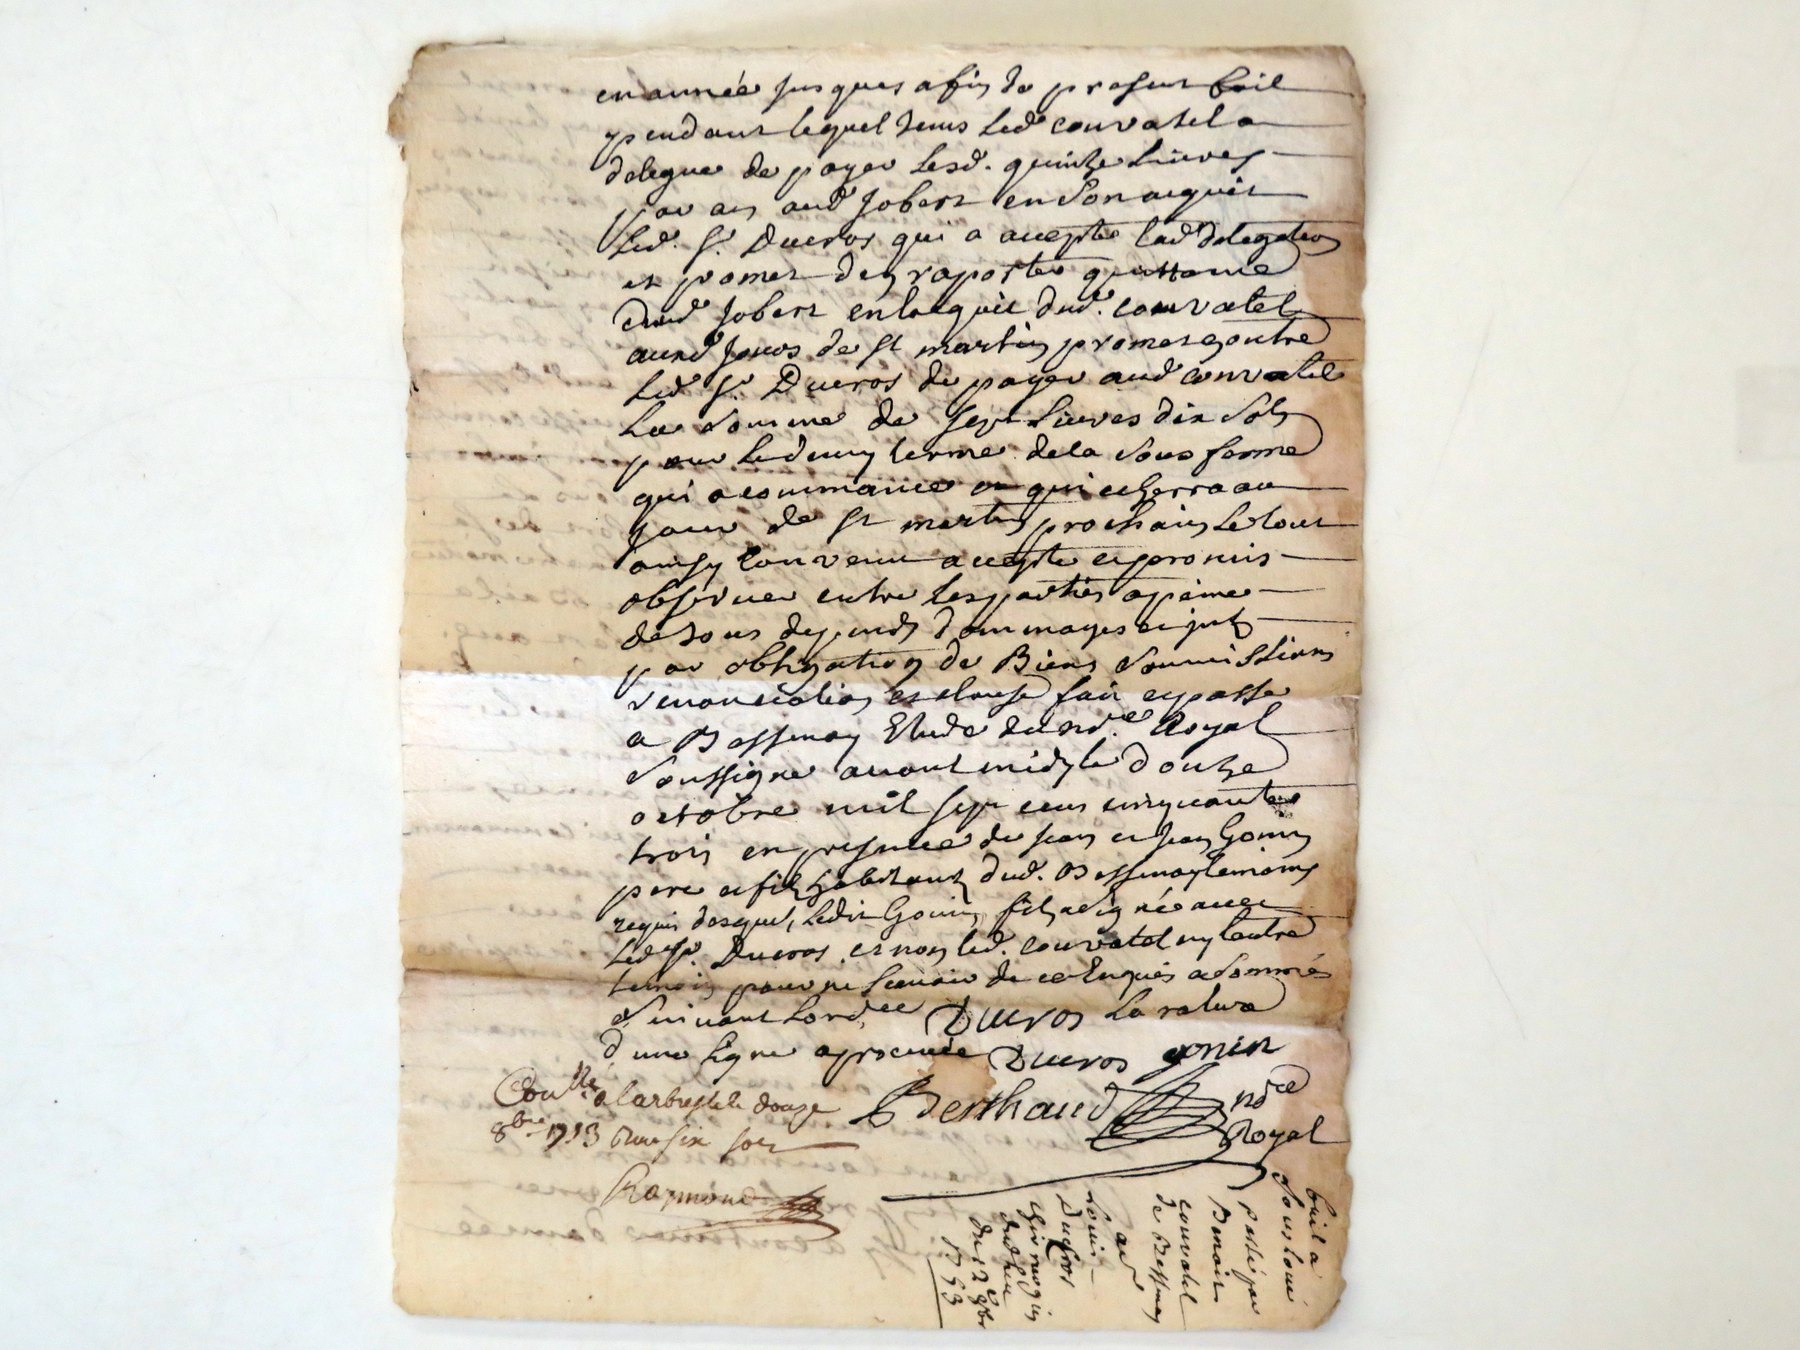 en année jusques a fin du present bail
pendant lequel tems led. couvatel a
delegue de payer lesd. quinze livres
par an aud. Jobert en son acquit
led. Sr. Ducros qui a accepté lad. delegation
et promet d'en raporter quittance
dud. Jobert en lacquit dud. couvatel
aud. jours de St martin promet en outre
led. Sr. Ducros de payer aud. couvatel
La somme de sept livres dix sols
pour le demy terme de la sous ferme
qui a commancé et qui echerra au
jour de St martin prochain le tout
ainsy convenu accepté et promis
observer entre les parties a peine
de tous depends dommages et
par obligation de Biens soumissions
renonciation et clause fait et passé
a Bessenay Etude du nore. Royal
soussigné avant midy le douze
octobre mil sept cens cinquante
trois en presence de jean et jean Gonin
pere et fils habitants dud. Bessenay temoins
requis desquels ledit Gonin fils a signé avec
led. Sr. Ducros et non led. couvatel ny lautre
temoin pour ne sçavoir de ce Enquis et sommés
suivant lordce Ducros La rature
d'une ligne aprouvée Ducros gonin
Berthaud nore
Royal
Conllé a larbresle le douze
8bre 1753 Reçu six sols
Raymond
bail a
sous loué
passé par
Benoit
couvatel
de Bessenay
au
Louis
Ducros
chirurgien
dud. lieu
du 12 8bre
1753